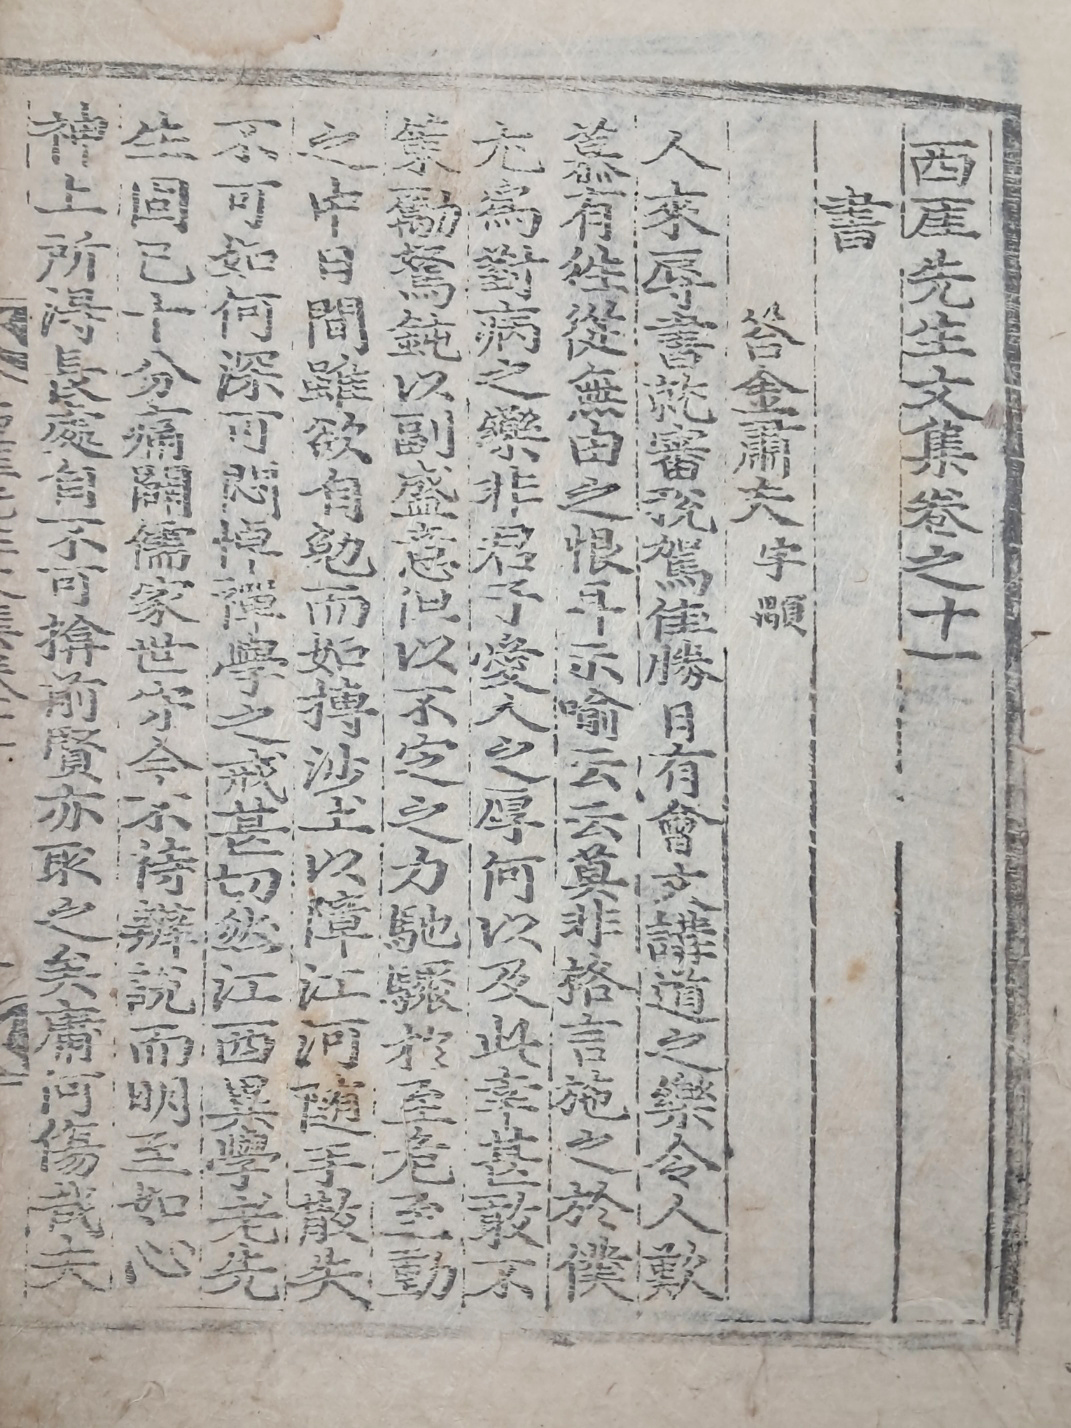 西厓先生文集卷之十一
書
答金肅夫 宇顒
人來辱書就審稅駕佳勝且有會友講道之樂令人歎
慕有欲從無由之恨耳示喩云云莫非格言施之於僕
尤爲對病之藥非君子愛人之厚何以及此幸甚敢不
策勵駑鈍以副盛意但以不定之力馳驟於至危至動
之中日間雖欲有勉而如摶沙土以障江河隨手散失
不可如何深可悶惧禪學之戒甚切然江西異學老先
生固已十分痛闢儒家世守今不待辨說而明至如心
神上所得長處自不可揜前賢亦取之矣庸何傷哉夫